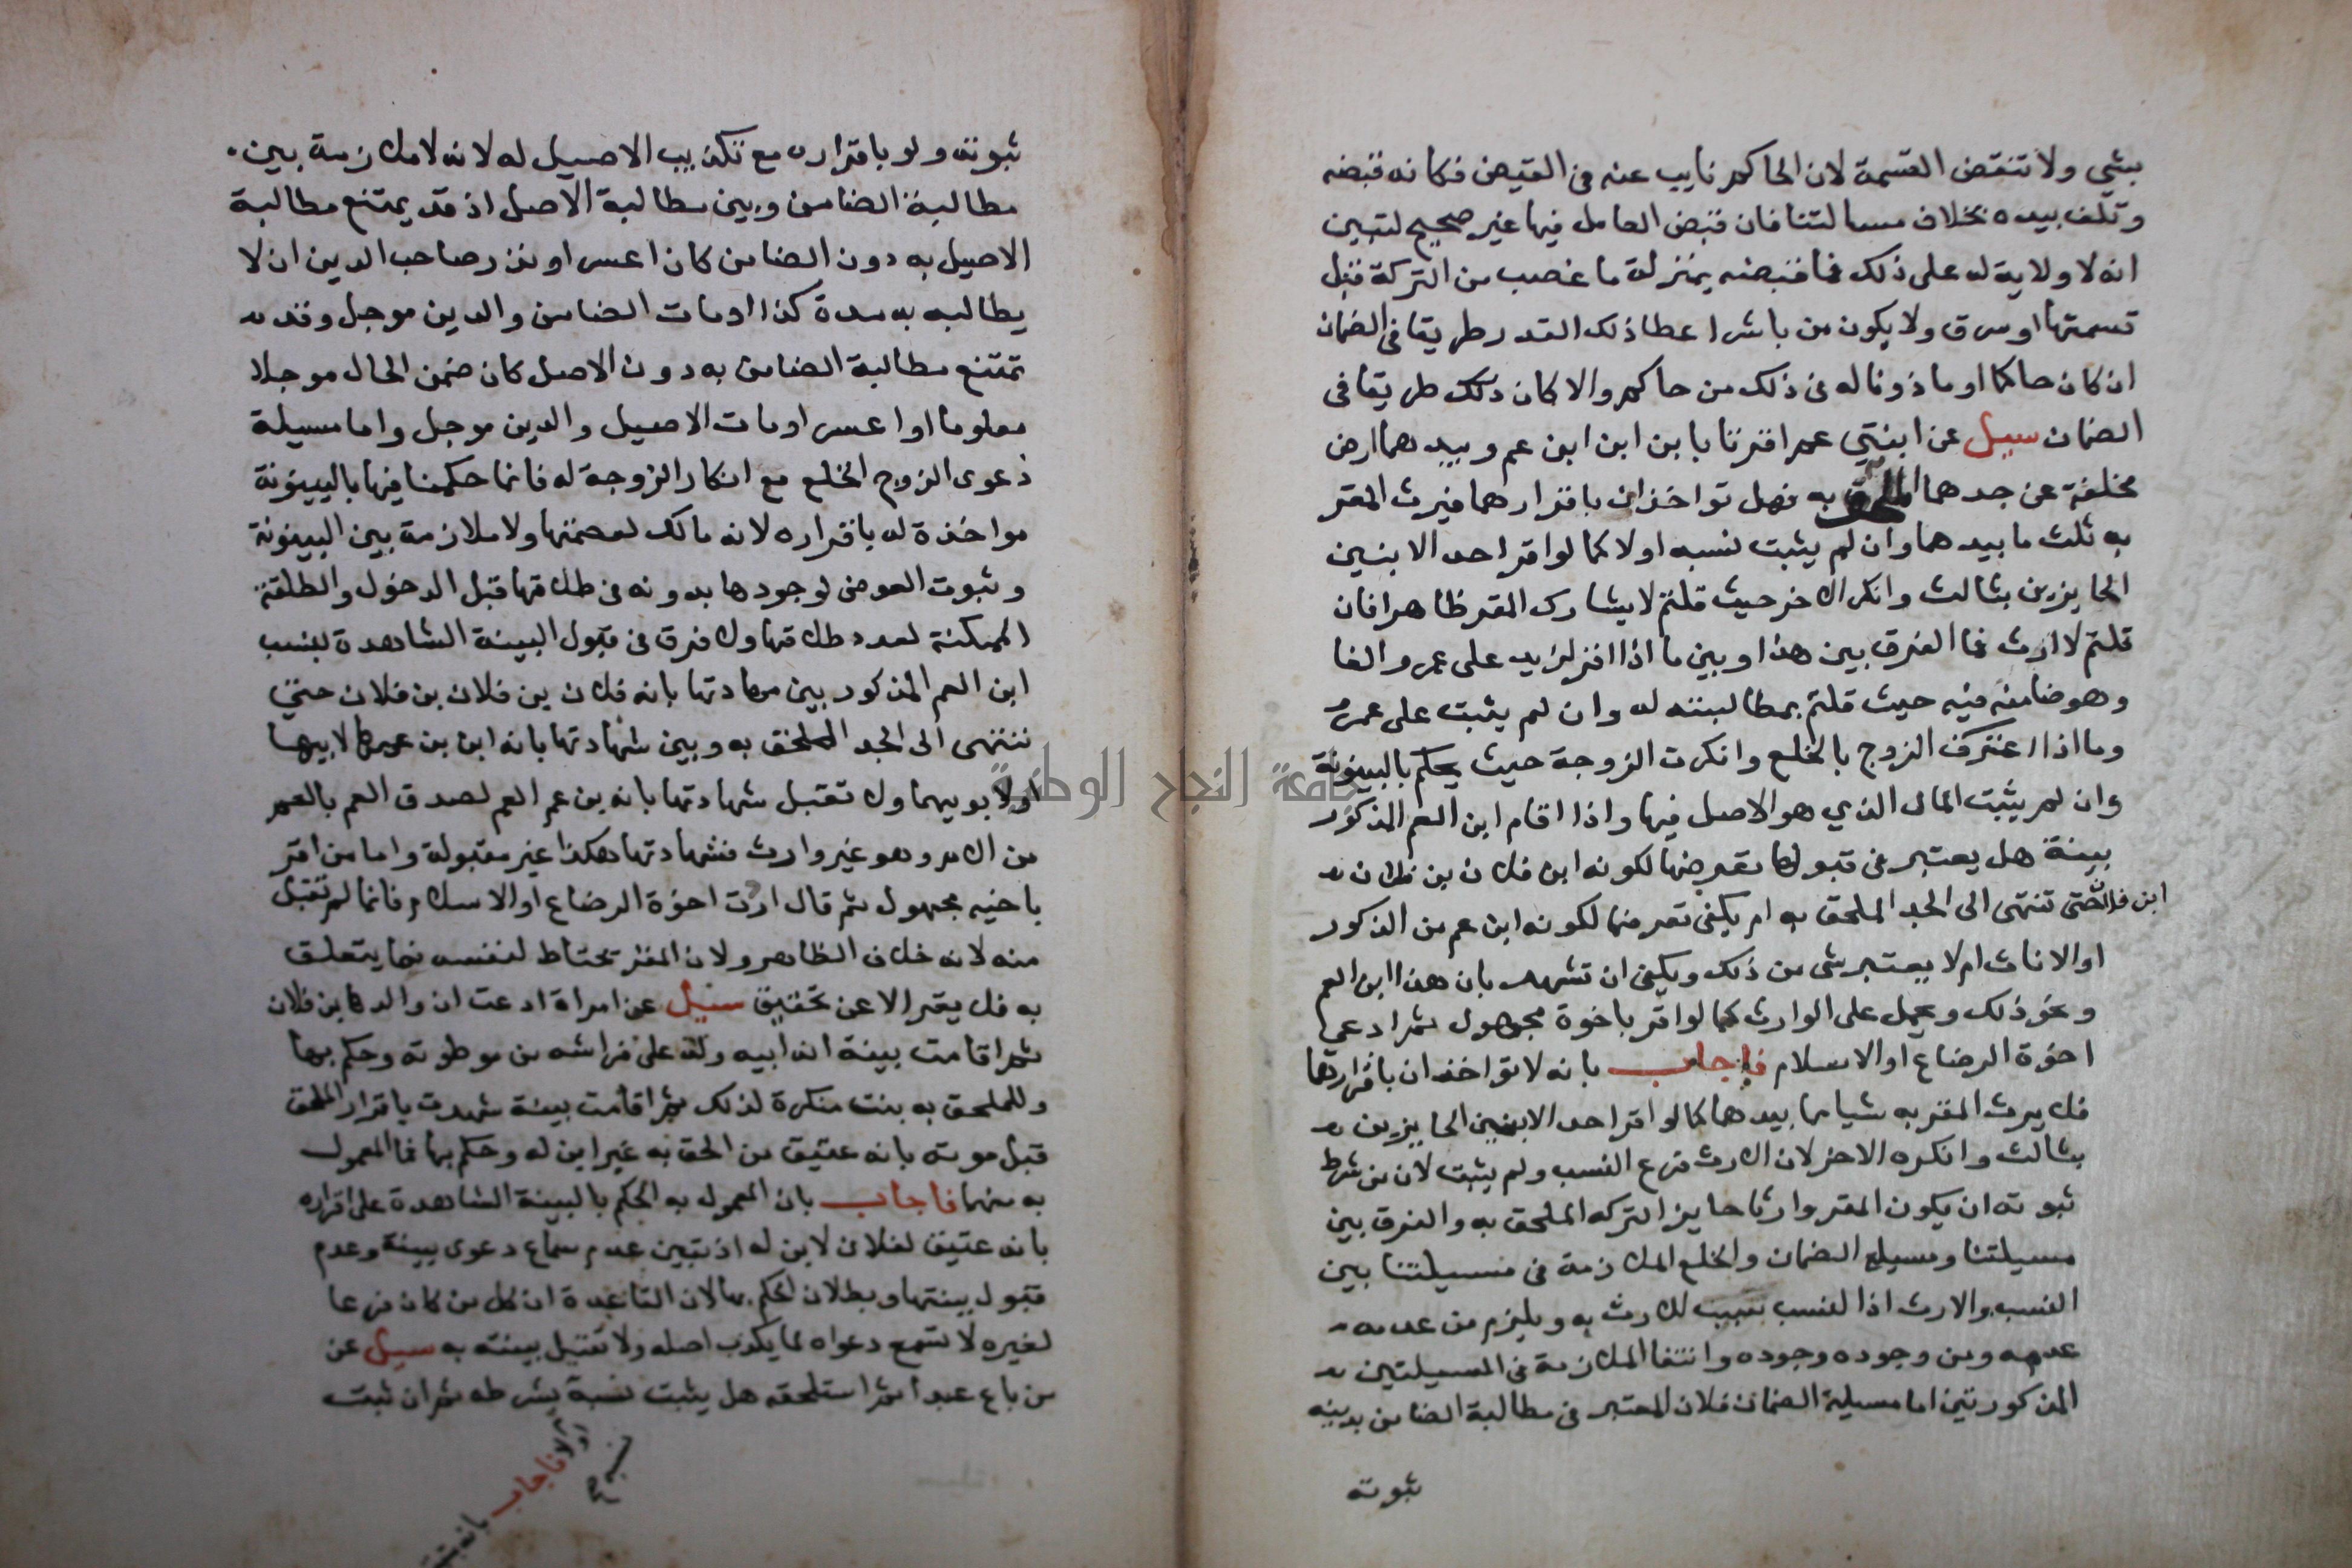 بشي ولا تنقض القسمة لان الحاكم نايب عنه في القبض فكانه قبضه
وتلف بيده بخلاف مسالتنا فان قبض العامل فيها غير صحيح لتبين
انه لا ولاية له على ذلك فما قبضه بمنزلة ما غصب من التركة قبل
قسمتها او سرق ولا يكون من باشر اعطا ذلك القدر طريقا في الضمان
ان كان حاكما او ماذونا له في ذلك من حاكم والا كان ذلك طريقا في
الضمان سيل عن ابنتي عم اقرتا بابن ابن ابن عم وبيدهما ارض
مخلفة عن جدهما الملحق به فهل تواخذان باقرارهما فيرث المقر
به ثلث ما بيدهما وان لم يثبت نسبه اولا كما لو اقر احد الابنين
الحايزين بثالث وانكر الاخر حيث قلتم لا يشارك المقر ظاهرا فان
قلتم لا ارث فما الفرق بين هذا وبين ما اذا اقر لزيد على عمرو الفا
وهو ضامنه فيه حيث قلتم بمطالبته له وان لم يثبت على عمرو
وما اذا اعترف الزوج بالخلع وانكرت الزوجة حيث يحكم بالبينونة
وان لم يثبت المال الذي هو الاصل فيها واذا اقام ابن العم المذكور
بينة هل يعتبر في قبولها تعرضها لكونه ابن فلان بن فلان
ابن فلان حتى تنتهى الى الجد الملحق به ام يكفي تعرضها لكونه ابن عم من الذكور
او الاناث ام لا يعتبر شى من ذلك ويكفي ان تشهد بان هذا ابن العم
ونحو ذلك ويحمل على الوارث كما لو اقر باخوة مجهول ثم ادعي
اخوة الرضاع او الاسلام فاجاب بانه لا تواخذان باقرارهما
فلا يرث المقر به شيا مما بيدهما كما لو اقر احد الابنين الحايزين
بثالث وانكره الاخر لان الارث فرع النسب ولم يثبت لان من شرط
ثبوته ان يكون المقر وارثا حايز التركه الملحق به والفرق بين
مسيلتنا ومسيلة الضمان والخلع الملازمة في مسيلتنا بين
النسب والارث اذ النسب سبب للارث به ويلزم من عدمه
عدمه ومن وجوده وجوده وانتفا الملازمة في المسيلتين
المذكورتين اما مسيلة الضمان فلان المعتبر في مطالبة الضامن بدينه
ثبوته
ثبوته ولو باقراره مع تكذيب الاصيل له لانه لا ملازمة بين
مطالبة الضامن وبين مطالبة الاصل اذ قد يمتنع مطالبة
الاصيل به دون الضامن كان اعسر او نذر صاحب الدين ان لا
يطالبه به مدة كذا او مات الضامن والدين موجل وقد
تمتنع مطالبة الضامن به دون الاصل كان ضمن الحال موجلا
معلوما او اعسر او مات الاصيل والدين موجل واما مسيلة
دعوى الزوج الخلع مع انكار الزوجة له فانما حكمنا فيها بالبينونة
مواخذة له باقراره لانه مالك لعصمتها ولا ملازمة بين البينونة
وثبوت العوض لوجودها بدونه في طلاقها قبل الدخول والطلقة
المكملة لعدد طلاقها ولا فرق في قبول البينة الشاهدة بنسب
ابن العم المذكور بين شهادتها بانه فلان بن فلان بن فلان حتي
تنتهى الى الجد الملحق به وبين شهادتها بانه ابن بن عمهما لابيهما
او لابويهما ولا تقبل شهادتها بانه بن عم العم لصدق العم بالعم
من الام وهو غير وارث فشهادتها هكذا غير مقبولة واما من اقر
باخيه مجهول ثم قال اردت اخوة الرضاع او الاسلام فانما لم تقبل
منه لانه خلاف الظاهر ولان المقر يحتاط لنفسه فيما يتعلق
به فلا يقر الا عن تحقيق سيل عن امراة ادعت ان والدها بن فلان
ثم اقامت بينة انه ابيه ولد على فراشه من موطوته وحكم بها
وللملحق به بنت منكرة لذلك ثم اقامت بينة شهدت باقرار الملحق
قبل موته بانه عتيق من الحق به غير ابن له وحكم بها فما المعمول
به منهما فاجاب بان المعمول به الحكم بالبينة الشاهدة على اقراره
بانه عتيق لفلان لابن له اذ تبين عدم سماع دعوى بينة وعدم
قبول بينتها وبطلان الحكم بها لان القاعدة ان كل من كان فرعا
لغيره لا تسمع دعواه لما يكذب اصله ولا تقبل بينته به سيل عن
من باع عبدا ثم استلحقه هل يثبت نسبة بشرطه ثم ان ثبت
نسبه
اولا فاجاب بانه
جامعة النجاح الوطنية